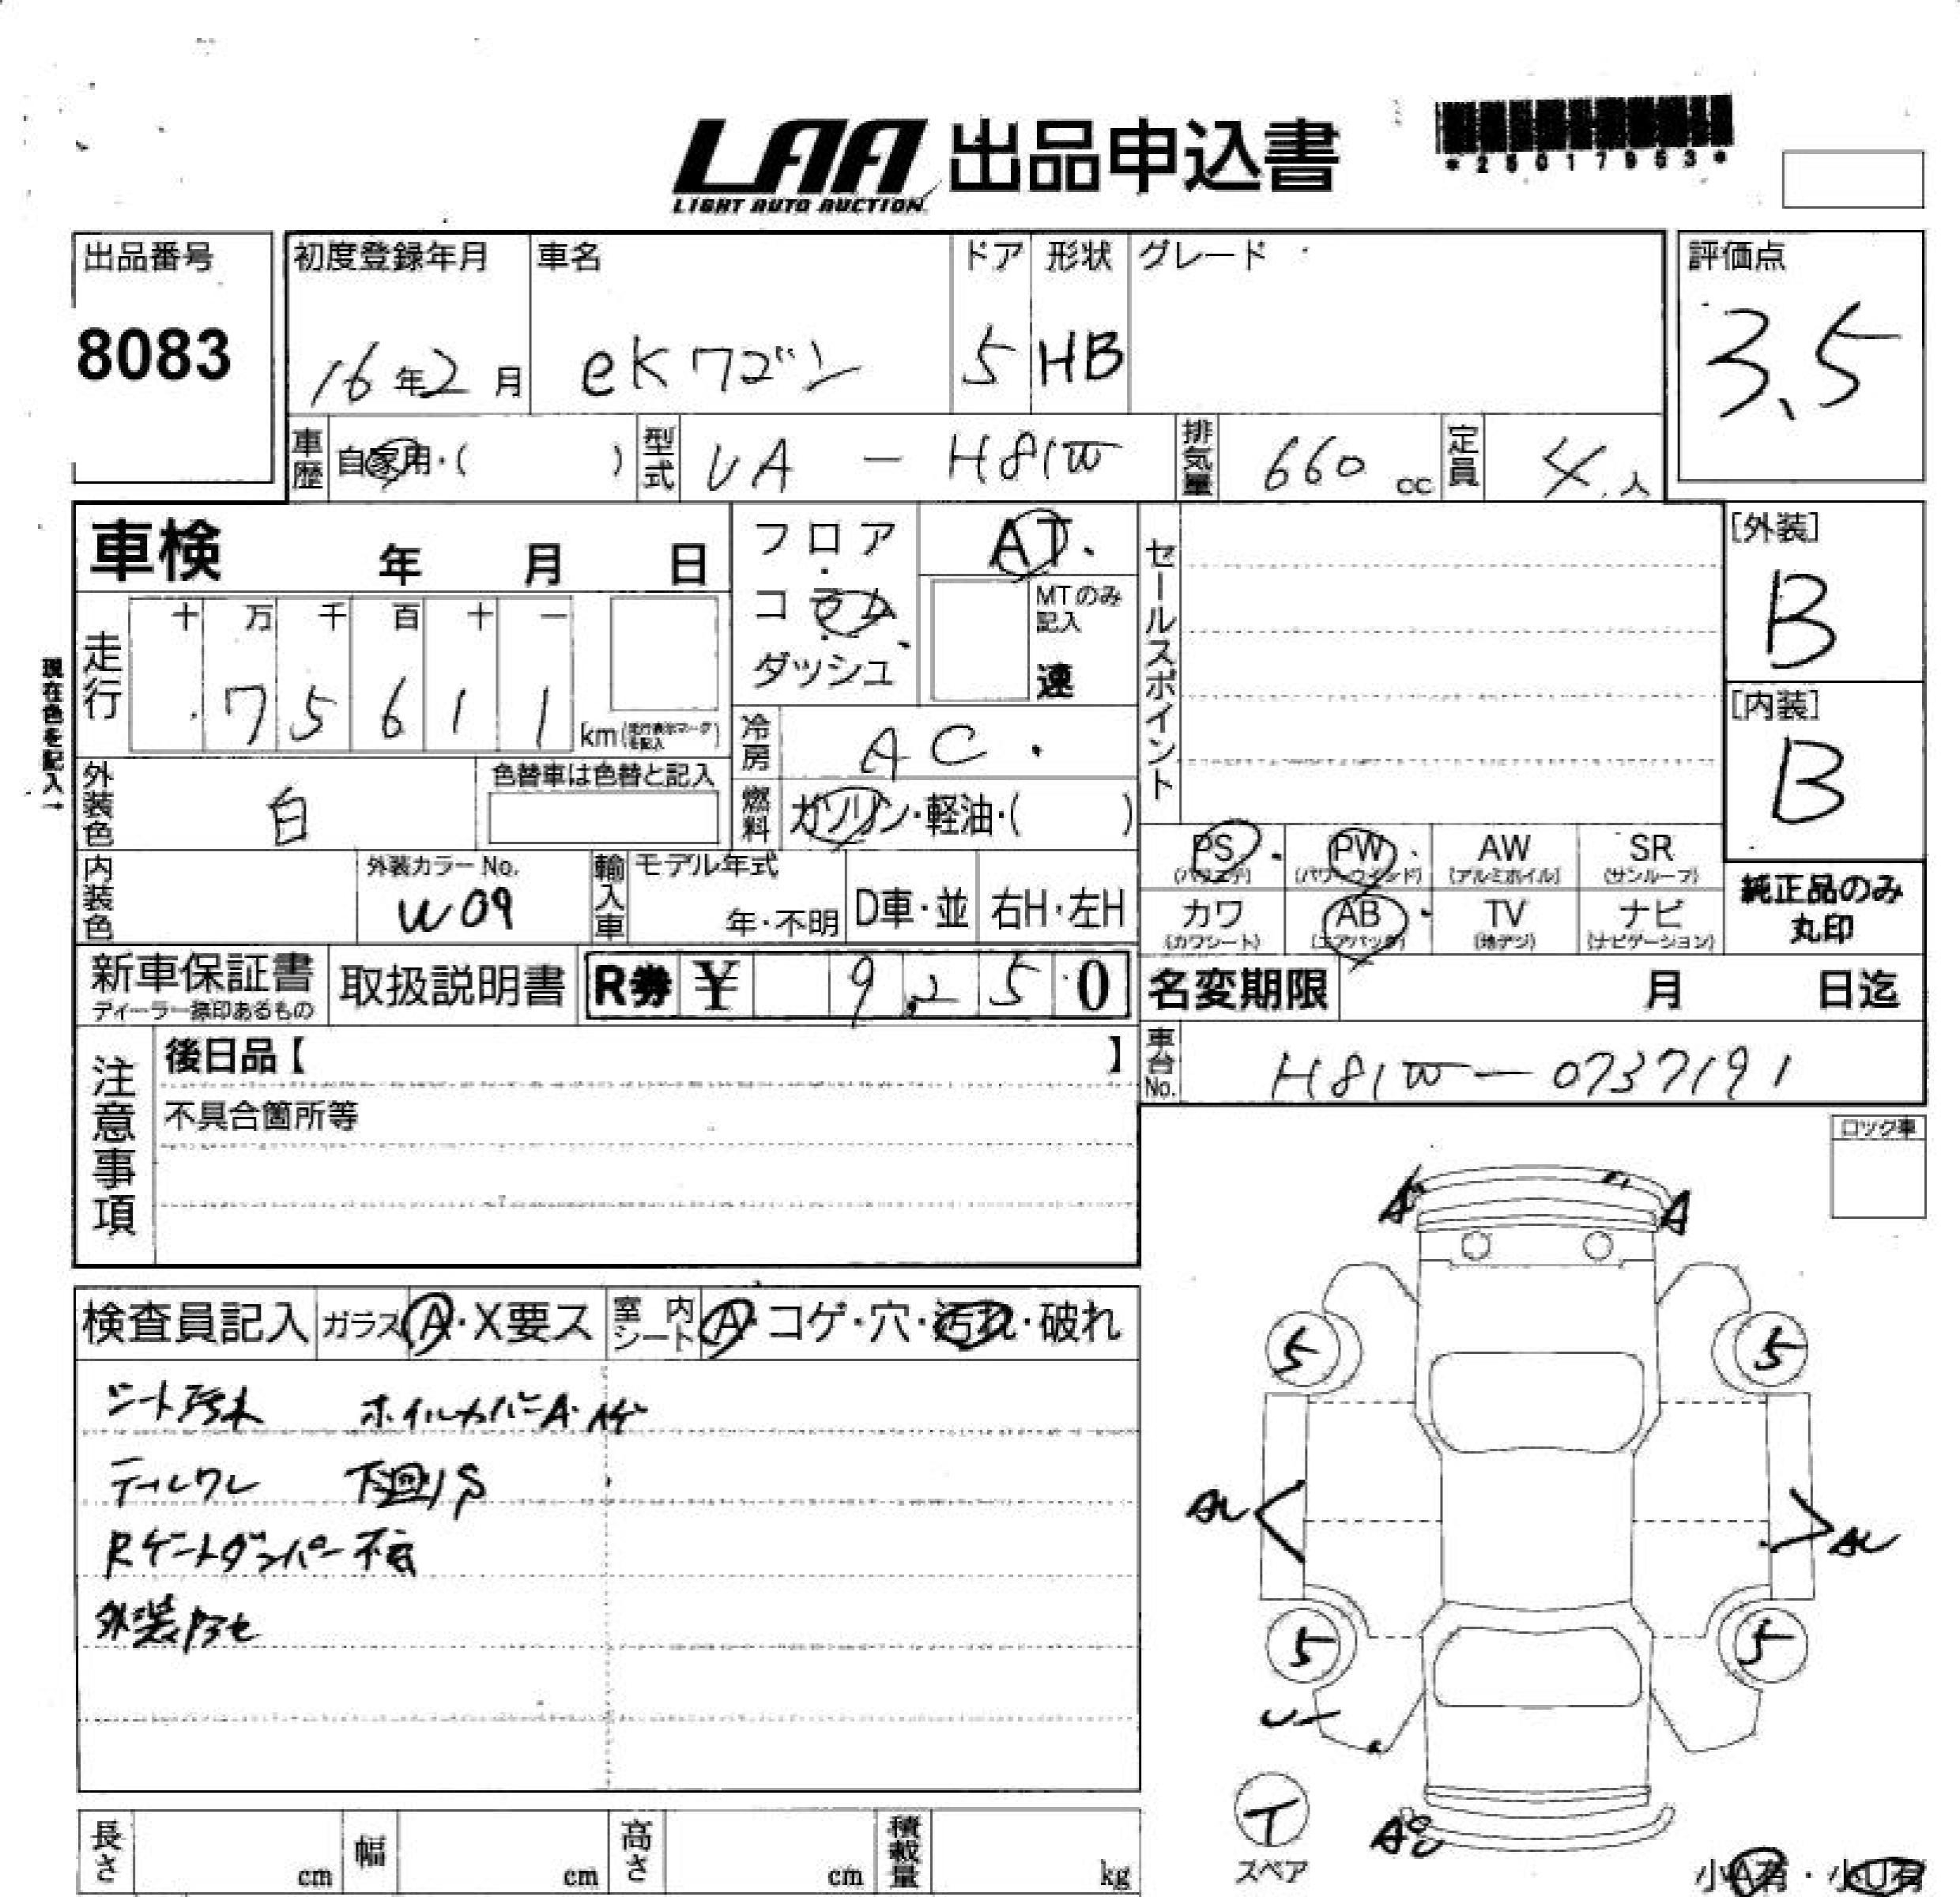 LAA 出品申込書
LIGHT AUTO AUCTION
出品番号
8083
初度登録年月 車名 ドア 形状 グレード
16年2月 eKワゴン 5 HB
評価点
3.5
車歴 自家用・( ) 型式 UA - H81W 排気量 660 cc 定員 4人
車検 年 月 日
フロア・コラム・ダッシュ
AT
MTのみ記入 速
セールスポイント
[外装]
B
[内装]
B
現在色を記入→
走行 十 万 千 百 十 一
75611 km
冷房 AC
外装色 白 色替車は色替と記入
燃料 ガソリン・軽油・( )
PS PW AW SR
(パワステ) (パワーウインド) (アルミホイル) (サンルーフ)
カワ AB TV ナビ
(カワシート) (エアバック) (地デジ) (ナビゲーション)
純正品のみ丸印
内装色 外装カラーNo. W09 輸入車 モデル年式 年・不明 D車・並 右H・左H
新車保証書 取扱説明書 R券 ¥ 9,250
ディーラー捺印あるもの
名変期限 月 日迄
車台No. H81W-0737191
注意事項
後日品【 】
不具合箇所等
ロック車
検査員記入 ガラス A・X要ス 室内シート A・コゲ・穴・汚れ・破れ
シート汚れ ホイルカバーA・
テールワレ 下廻りS
Rゲートダンパー不良
A A
5 5
AU AU
5 5
U
T
スペア
長さ cm 幅 cm 高さ cm 積載量 kg
小A有・小U有